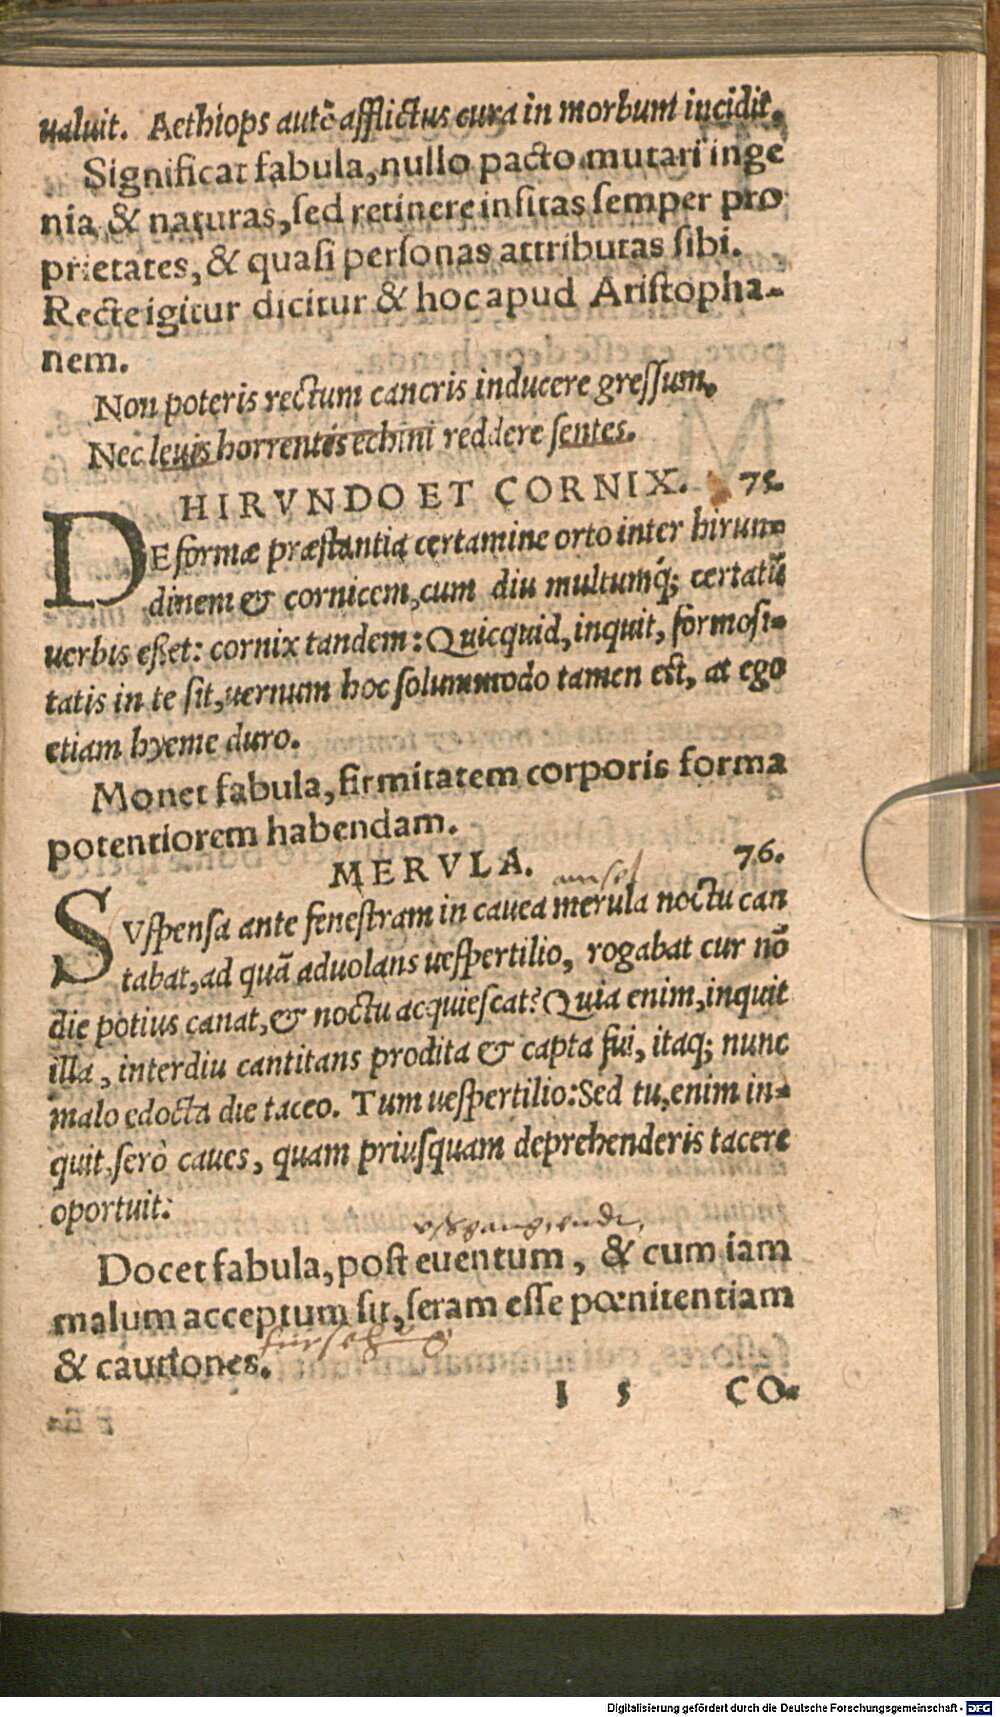 ualuit. Aethiops autē afflictus cura in morbum incidit.
Significat fabula, nullo pacto mutari inge
nia & naturas, sed retinere insitas semper pro
prietates, & quasi personas attributas sibi.
Recte igitur dicitur & hoc apud Aristopha-
nem.
Non poteris rectum cancris inducere gressum.
Nec leuis horrentis echini reddere sentes.
HIRVNDO ET CORNIX. 75.
DE formæ præstantia certamine orto inter hirun-
dinem & cornicem, cum diu multumq́; certatū
uerbis esset: cornix tandem: Quicquid, inquit, formosi-
tatis in te sit, uernum hoc solummodo tamen est, at ego
etiam hyeme duro.
Monet fabula, firmitatem corporis forma
potentiorem habendam.
MERVLA. 76.
amsel
SVspensa ante fenestram in cauea merula noctu can
tabat, ad quā aduolans uespertilio, rogabat cur nō
die potius canat, & noctu acquiescat? Quia enim, inquit
illa, interdiu cantitans prodita & capta fui, itaq; nunc
malo edocta die taceo. Tum uespertilio: Sed tu, enim in-
quit, serò caues, quam priusquam deprehenderis tacere
oportuit:
Docet fabula, post euentum, & cum iam
malum acceptum sit, seram esse pœnitentiam
& cautiones.
I 5 CO-
Digitalisierung gefördert durch die Deutsche Forschungsgemeinschaft - DFG